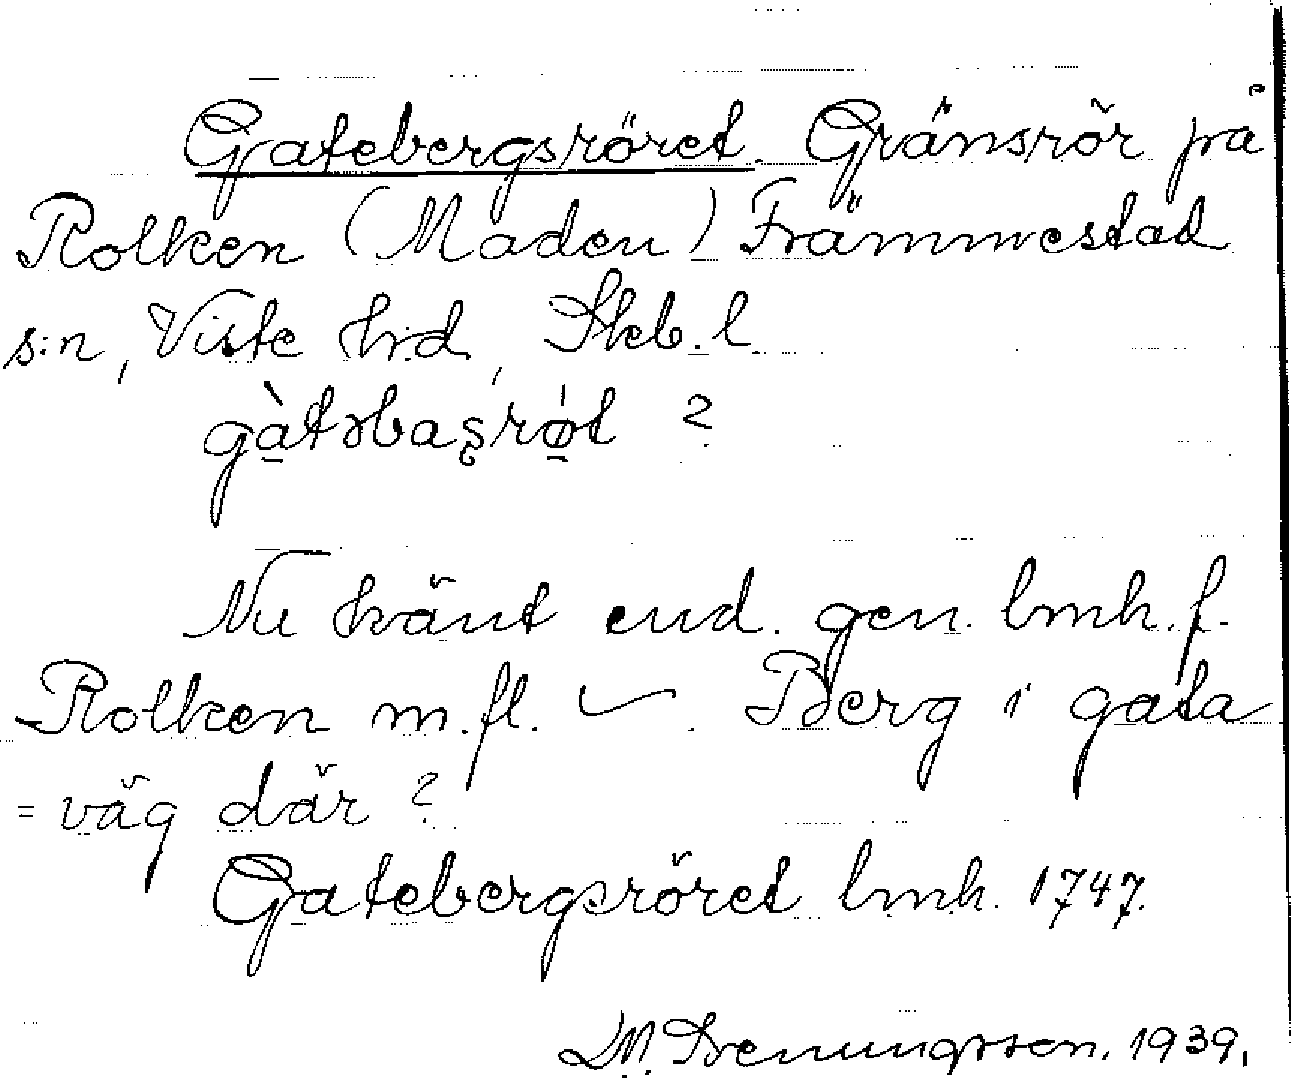 Gatebergsröret. Gränsrör på
Rolken (Maden) Främmestad
s:n, Viste hd, Skab. l.
gàtəbaʂrǿt ?
Nu känt end. gen. lmh. f.
Rolken m. fl. Berg i gata
= väg där ?
Gatebergsröret lmh. 1747.
1939.